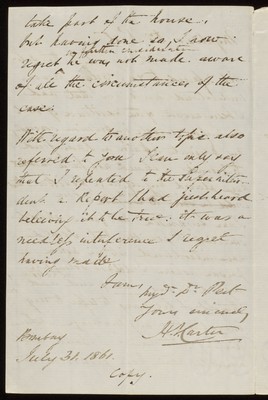 take part of the house,
but having done so, I now
regret he was not made aware
of all the circumstances of the
case.
With regard to another topic also
referred to you I can only say
that I repeated to the
a Report I had just heard
believing it to be true. it was a
needless interference I regret
having made.
I am,
my Dr. Dr.
Yours sincerely
H. Carter
Bombay
July 31. 1861.
Copy.